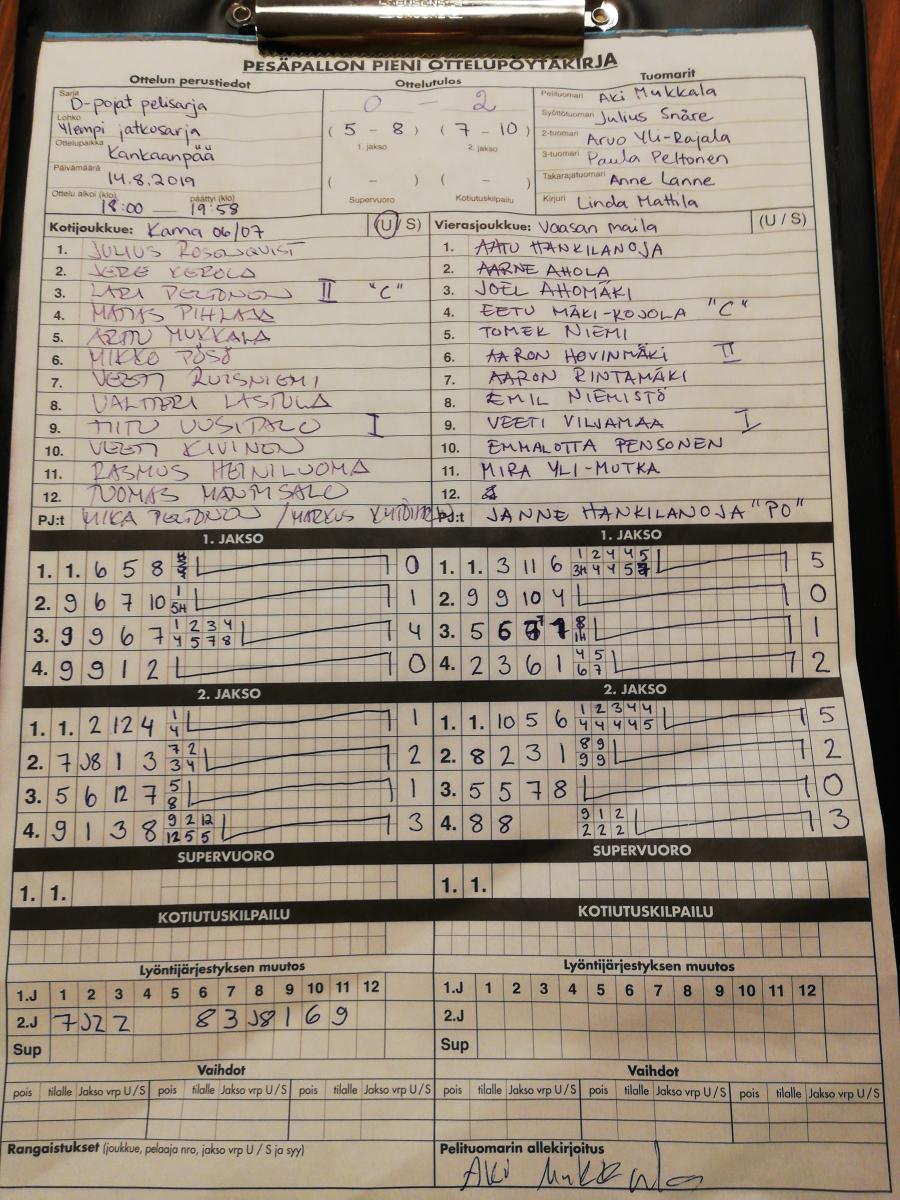 PESÄPALLON PIENI OTTELUPÖYTÄKIRJA
Ottelun perustiedot
Sarja D-pojat pelisarja
Lohko Ylempi jatkosarja
Ottelupaikka Kankaanpää
Päivämäärä 14.8.2019
Ottelu alkoi (klo) 18:00 päättyi (klo) 19:58
Ottelutulos
0 - 2
( 5 - 8 ) ( 7 - 10 )
1. jakso 2. jakso
( - ) ( - )
Supervuoro Kotiutuskilpailu
Tuomarit
Pelituomari Aki Mukkala
Syöttötuomari Julius Snäre
2-tuomari Arvo Yli-Rajala
3-tuomari Paula Peltonen
Takarajatuomari Anne Lanne
Kirjuri Linda Mattila
Kotijoukkue: Kama 06/07 (U / S)
1. JULIUS ROSENQVIST
2. JERE KEROLA
3. LARI PELTONEN II "C"
4. MATIAS PIHLAJA
5. ARTTU MUKKALA
6. MIKKO PÖSÖ
7. VEETI RUISNIEMI
8. VALTTERI LASTULA
9. TIITU UUSITALO I
10. VEETI KIVINEN
11. RASMUS HEINILUOMA
12. TUOMAS
PJ:t MIKA PELTONEN / MARKUS
Vierasjoukkue: Vaasan maila (U / S)
1. AATU HANKILANOJA
2. AARNE AHOLA
3. JOEL AHOMÄKI
4. EETU MÄKI-KOJOLA "C"
5. TOMEK NIEMI
6. AARON HOVINMÄKI II
7. AARON RINTAMÄKI
8. EMIL NIEMISTÖ
9. VEETI VILJAMAA I
10. EMMALOTTA PENSONEN
11. MIRA YLI-MUTKA
12.
PJ:t JANNE HANKILANOJA "PO"
1. JAKSO
1. 1. 6 5 8 0
2. 9 6 7 10 1 5H 1
3. 9 9 6 7 1 2 3 4 4 5 7 8 4
4. 9 9 1 2 0
1. JAKSO
1. 1. 3 11 6 1 2 4 4 5 3H 4 4 5 5
2. 9 9 10 4 0
3. 5 6 8 1H 1
4. 2 3 6 1 4 5 6 7 2
2. JAKSO
1. 1. 2 12 4 1 4 1
2. 7 J8 1 3 7 2 3 4 2
3. 5 6 12 7 5 8 1
4. 9 1 3 8 9 2 12 12 5 5 3
2. JAKSO
1. 1. 10 5 6 1 2 3 4 4 4 4 4 4 5 5
2. 8 2 3 1 8 9 9 9 2
3. 5 5 7 8 0
4. 8 8 9 1 2 2 2 2 3
SUPERVUORO
1. 1.
SUPERVUORO
1. 1.
KOTIUTUSKILPAILU
KOTIUTUSKILPAILU
Lyöntijärjestyksen muutos
1.J 1 2 3 4 5 6 7 8 9 10 11 12
2.J 7 J2 2 8 3 J8 1 6 9
Sup
Lyöntijärjestyksen muutos
1.J 1 2 3 4 5 6 7 8 9 10 11 12
2.J
Sup
Vaihdot
pois tilalle Jakso vrp U / S pois tilalle Jakso vrp U / S pois tilalle Jakso vrp U / S
Vaihdot
pois tilalle Jakso vrp U / S pois tilalle Jakso vrp U / S pois tilalle Jakso vrp U / S
Rangaistukset (joukkue, pelaaja nro, jakso vrp U / S ja syy)
Pelituomarin allekirjoitus
Aki Mukkala